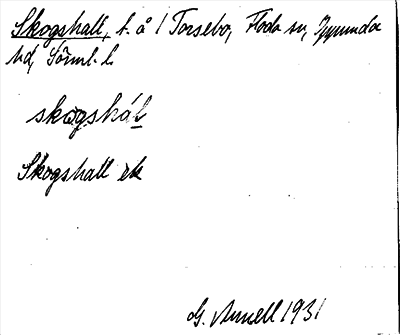 Skogshall, t. å 1 Torsebo, Floda sn,
hd, Sörml. l.
skogshál
Skogshall ek
G. Annell 1931